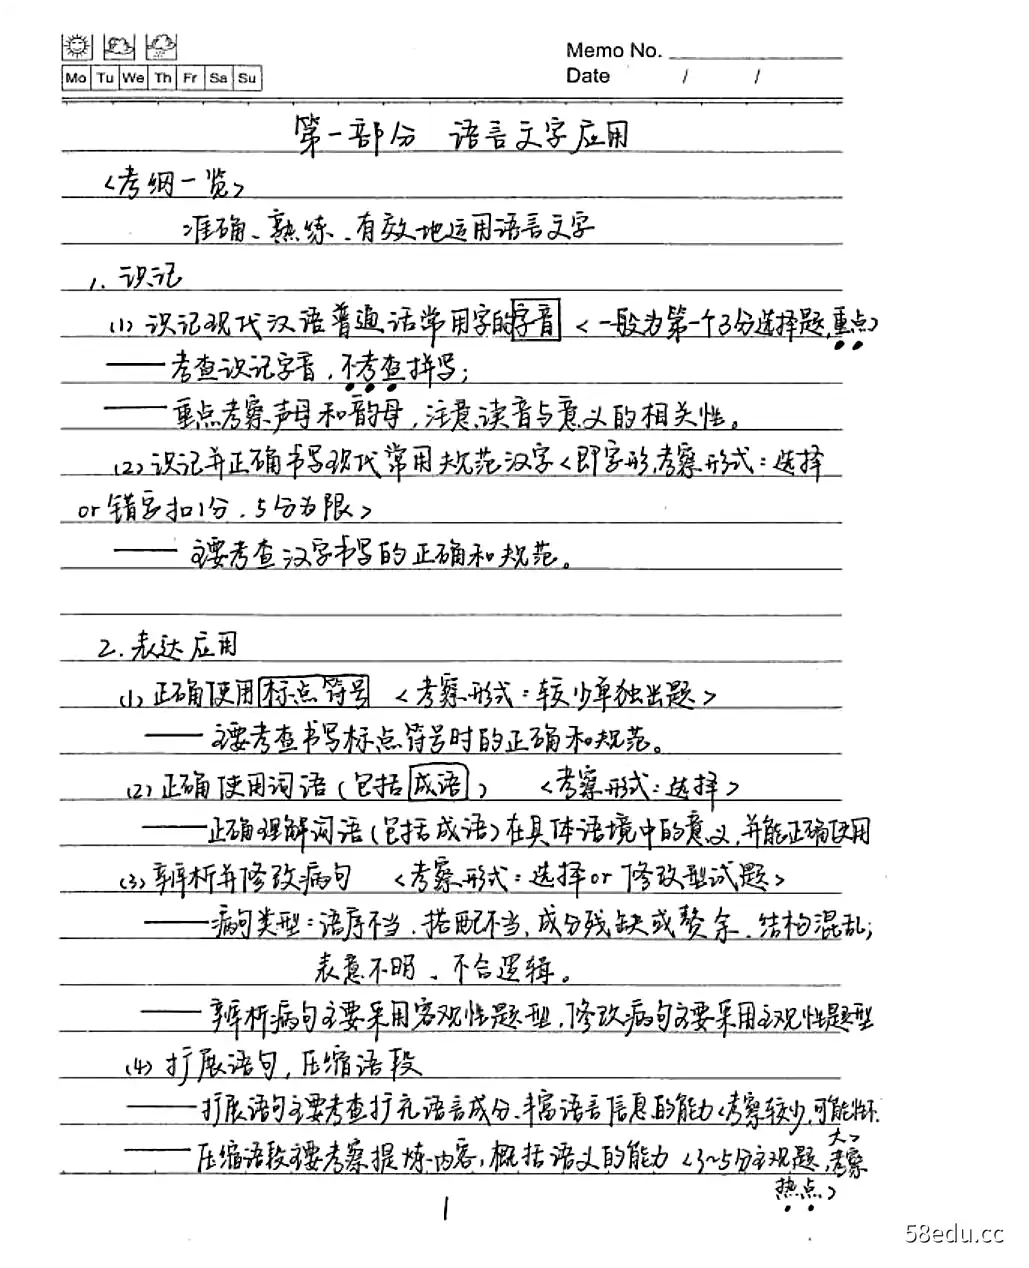 Memo No.
Mo Tu We Th Fr Sa Su
Date / /
第一部分 语言文字应用
<考纲一览>
准确、熟练、有效地运用语言文字
1. 识记
(1) 识记现代汉语普通话常用字的字音 <一般为第一个3分选择题,重点>
——考查识记字音，不考查拼写；
——重点考察声母和韵母，注意读音与意义的相关性。
(2) 识记并正确书写现代常用规范汉字<即字形,考察形式：选择
or 错字扣1分，5分为限>
—— 主要考查汉字书写的正确和规范。
2. 表达应用
(1) 正确使用标点符号 <考察形式：较少单独出题>
—— 主要考查书写标点符号时的正确和规范。
(2) 正确使用词语(包括成语) <考察形式：选择>
——正确理解词语(包括成语)在具体语境中的意义,并能正确使用
(3) 辨析并修改病句 <考察形式：选择or 修改型试题>
——病句类型：语序不当、搭配不当、成分残缺或赘余、结构混乱；
表意不明、不合逻辑。
—— 辨析病句主要采用客观性题型，修改病句主要采用主观性题型
(4) 扩展语句，压缩语段
——扩展语句主要考查扩充语言成分、丰富语言信息的能力<考察较少,可能性不
大>
——压缩语段主要考察提炼内容，概括语义的能力 <3~5分主观题,考察
热点>
1
58edu.cc